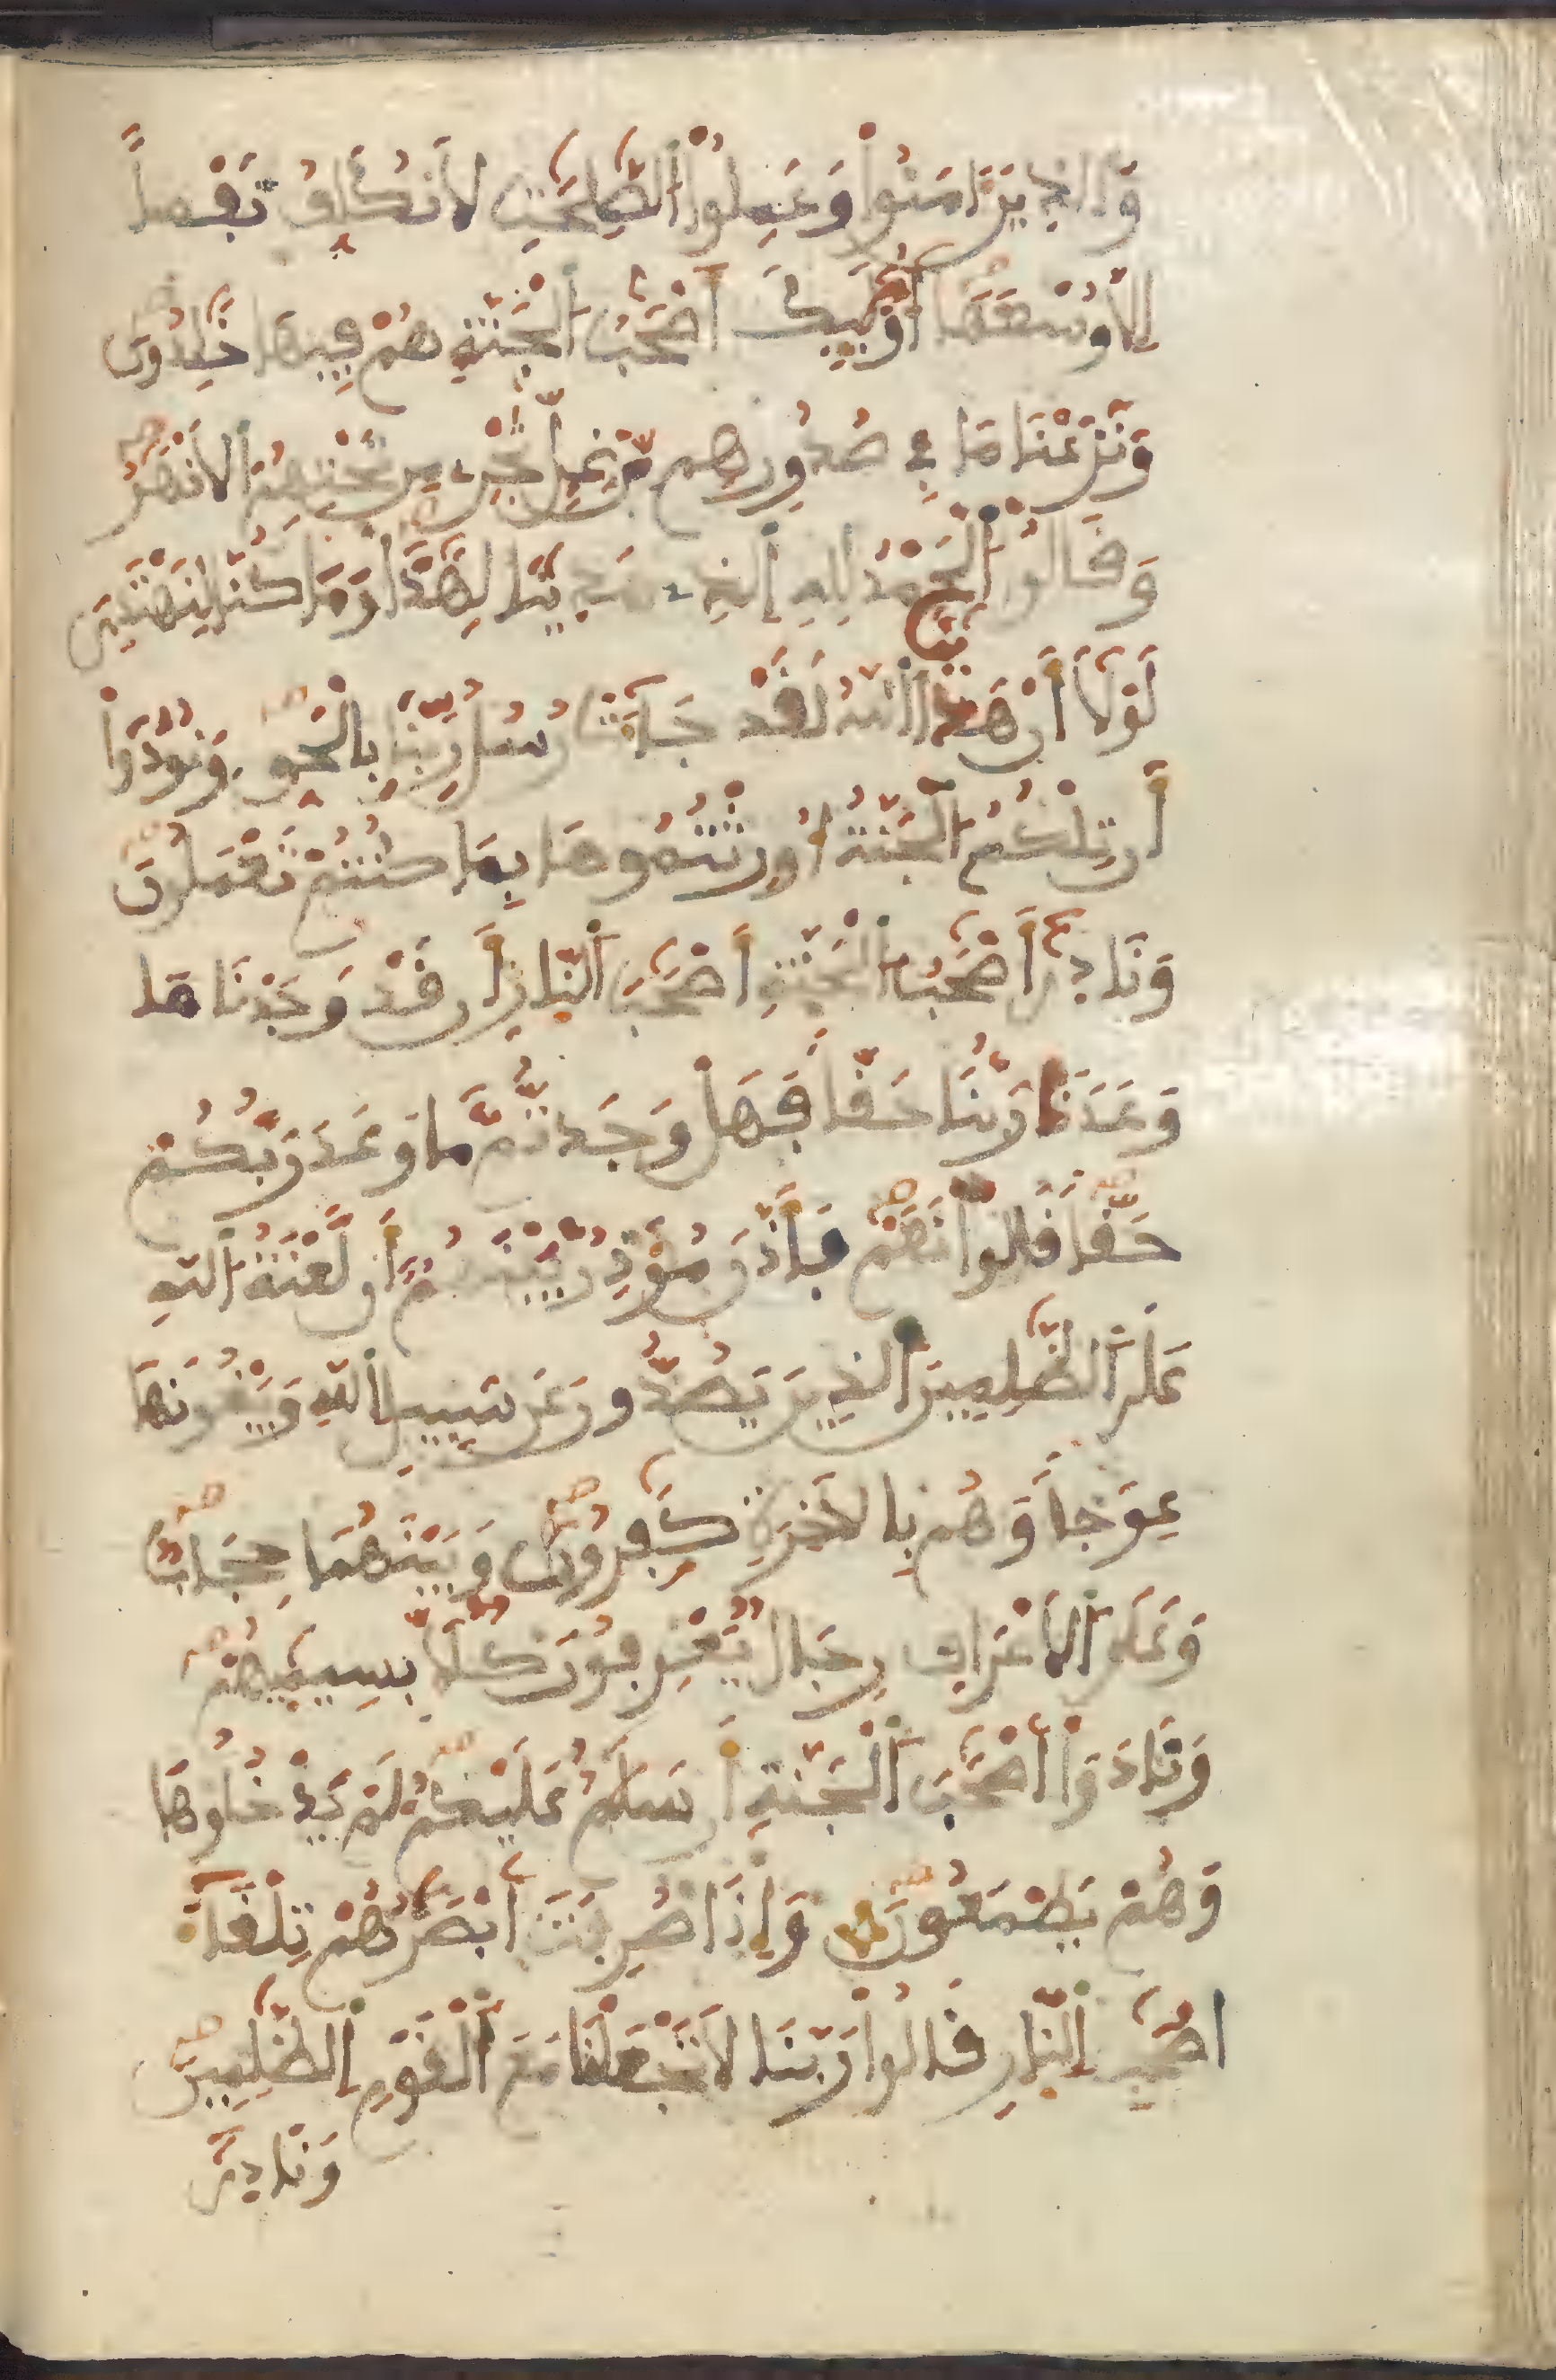 وَالذِينَ ءَامَنُواْ وَعَمِلُواْ الصَّٰلِحَٰتِ لَا نُكَلِّفُ نَفْساً
اِلَّا وُسْعَهَا أُوْلَٰئِكَ أَصْحَٰبُ الْجَنَّةِ هُمْ فِيهَا خَٰلِدُونَ
وَنَزَعْنَا مَا فِي صُدُورِهِم مِّنْ غِلٍّ تَجْرِي مِن تَحْتِهِمُ الْأَنْهَٰرُ
وَقَالُواْ الْحَمْدُ لِلهِ الذِي هَدَيٰنَا لِهَٰذَا وَمَا كُنَّا لِنَهْتَدِيَ
لَوْلَا أَنْ هَدَيٰنَا اَللَّهُ لَقَدْ جَاءَتْ رُسُلُ رَبِّنَا بِالْحَقِّ وَنُودُواْ
أَن تِلْكُمُ الْجَنَّةُ أُورِثْتُمُوهَا بِمَا كُنتُمْ تَعْمَلُونَ
وَنَادَىٰ أَصْحَٰبُ الْجَنَّةِ أَصْحَٰبَ النَّارِ أَن قَدْ وَجَدْنَا مَا
وَعَدَنَا رَبُّنَا حَقّاً فَهَلْ وَجَدتُّم مَّا وَعَدَ رَبُّكُمْ
حَقّاً قَالُواْ نَعَمْ فَأَذَّنَ مُؤَذِّنٌ بَيْنَهُمْ أَن لَّعْنَةُ اللَّهِ
عَلَى الظَّٰلِمِينَ الذِينَ يَصُدُّونَ عَن سَبِيلِ اللَّهِ وَيَبْغُونَهَا
عِوَجاً وَهُم بِالْأَخِرَةِ كَٰفِرُونَ وَبَيْنَهُمَا حِجَابٌ
وَعَلَى الْأَعْرَافِ رِجَالٌ يَعْرِفُونَ كُلّاً بِسِيمَيٰهُمْ
وَنَادَوْاْ أَصْحَٰبَ الْجَنَّةِ أَن سَلَٰمٌ عَلَيْكُمْ لَمْ يَدْخُلُوهَا
وَهُمْ يَطْمَعُونَ وَإِذَا صُرِفَتَ اَبْصَٰرُهُمْ تِلْقَاءَ
اَصْحَٰبِ النَّارِ قَالُواْ رَبَّنَا لَا تَجْعَلْنَا مَعَ الْقَوْمِ الظَّٰلِمِينَ
وَنَادَىٰ